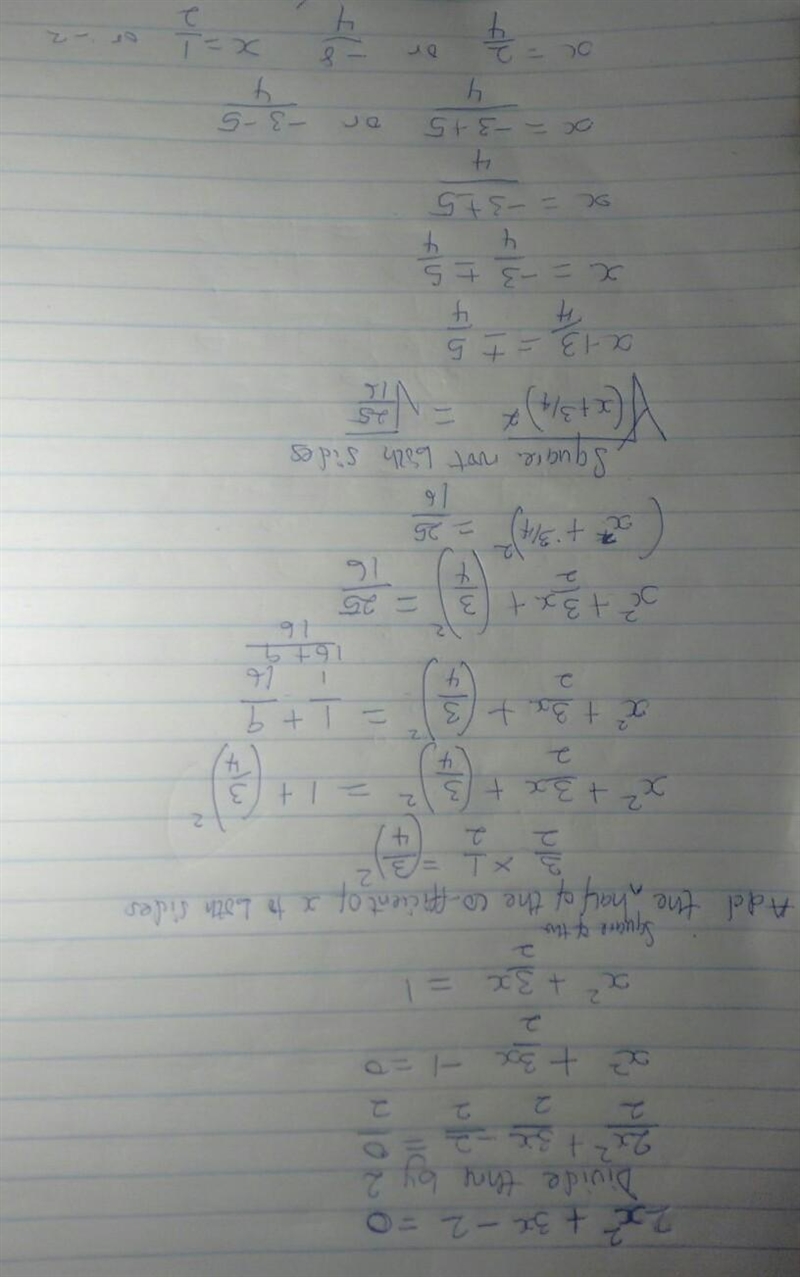 2x² + 3x - 2 = 0
Divide thru by 2
2x²/2 + 3x/2 - 2/2 = 0/2
x² + 3x/2 - 1 = 0
x² + 3x/2 = 1
Square of the
Add the ^ half of the co-efficient of x to both sides
3/2 × 1/2 = (3/4)²
x² + 3x/2 + (3/4)² = 1 + (3/4)²
x² + 3x/2 + (3/4)² = 1/1 + 9/16
16+9/16
x² + 3x/2 + (3/4)² = 25/16
(x + 3/4)² = 25/16
Square root both sides
√(x+3/4)² = √25/16
x+3/4 = ± 5/4
x = -3/4 ± 5/4
x = -3±5/4
x = -3+5/4 or -3-5/4
x = 2/4 or -8/4 x = 1/2 or -2